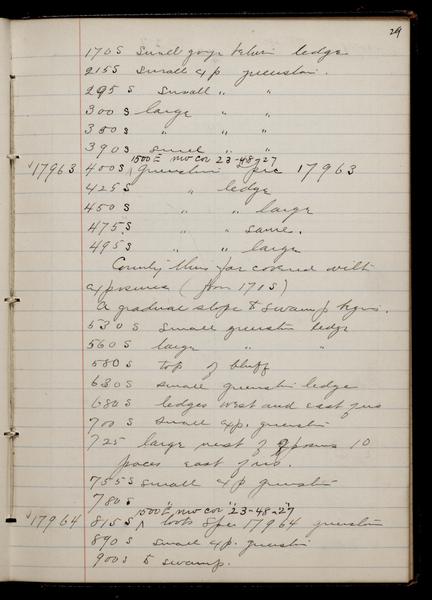 29
170 S small gorge below ledge
215 S small exp greenston.
295 S small " "
300 S large " "
350 S " " "
390 S small " "
1500 E NW cor 23-48-27
✓17963 400 S Greenston Spec 17963
425 S " ledge
450 S " " large
475 S " " same.
495 S " " large
County thus far covered with
exposures (from 170 S)
A gradual slope to swamp begins.
530 S small greenston ledge
560 S large " "
580 S top of bluff
630 S small greenston ledge
680 S ledges west and east of us
700 S small exp. greenston
725 large nest of exposures 10
paces east of us.
755 S small exp greenston
780 S " " "
1500 E NW cor 23-48-27
✓17964 815 S took Spec 17964 greenston
890 S small exp. greenston
900 S to swamp.